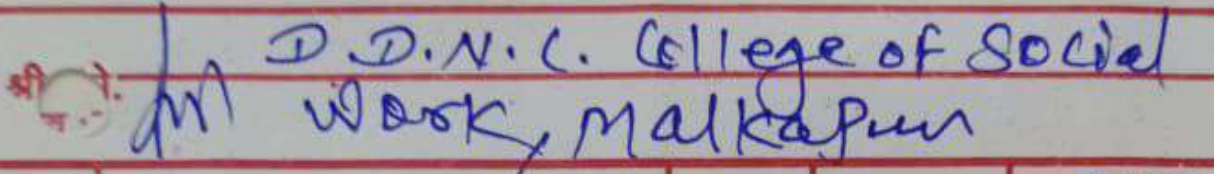 श्री
D.D.N.C. College of Social
Work, Malkapur